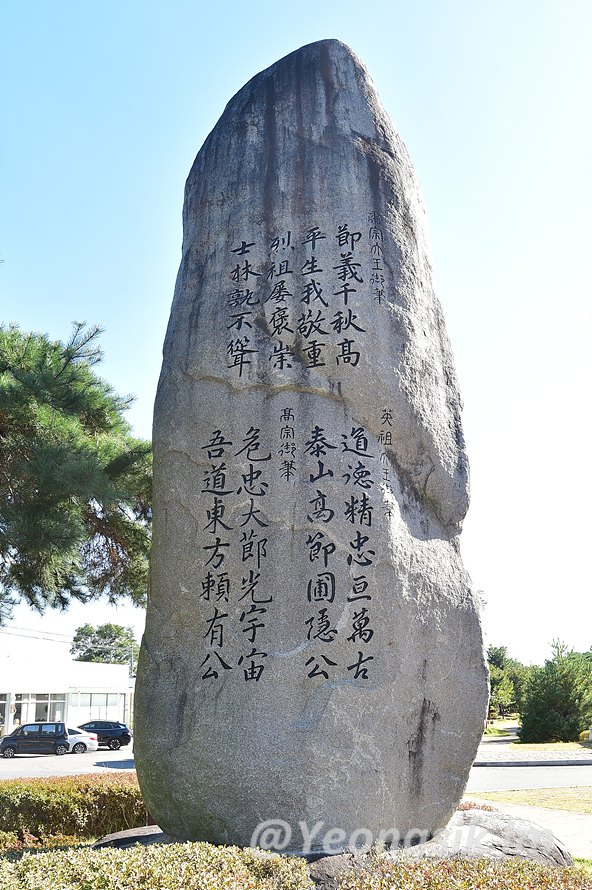 肅宗大王御筆
節義千秋高
平生我敬重
烈祖屢褒崇
士林孰不聳
英祖大王御筆
道德精忠亘萬古
泰山高節圃隱公
高宗御筆
危忠大節光宇宙
吾道東方賴有公